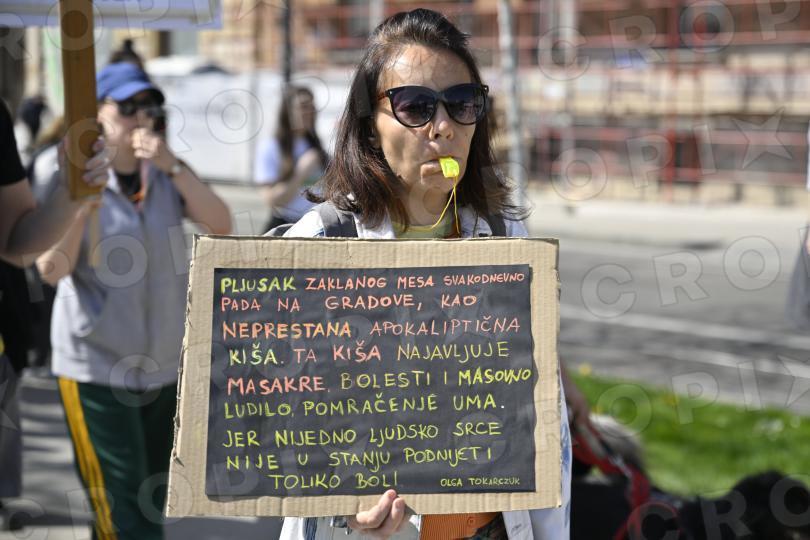 PLJUSAK ZAKLANOG MESA SVAKODNEVNO
PADA NA GRADOVE, KAO
NEPRESTANA APOKALIPTIČNA
KIŠA. TA KIŠA NAJAVLJUJE
MASAKRE, BOLESTI I MASOVNO
LUDILO, POMRAČENJE UMA.
JER NIJEDNO LJUDSKO SRCE
NIJE U STANJU PODNIJETI
TOLIKO BOLI
OLGA TOKARCZUK
CROPIX